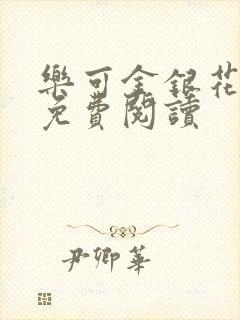 樂可金銀花
免費閱讀
尹卿華